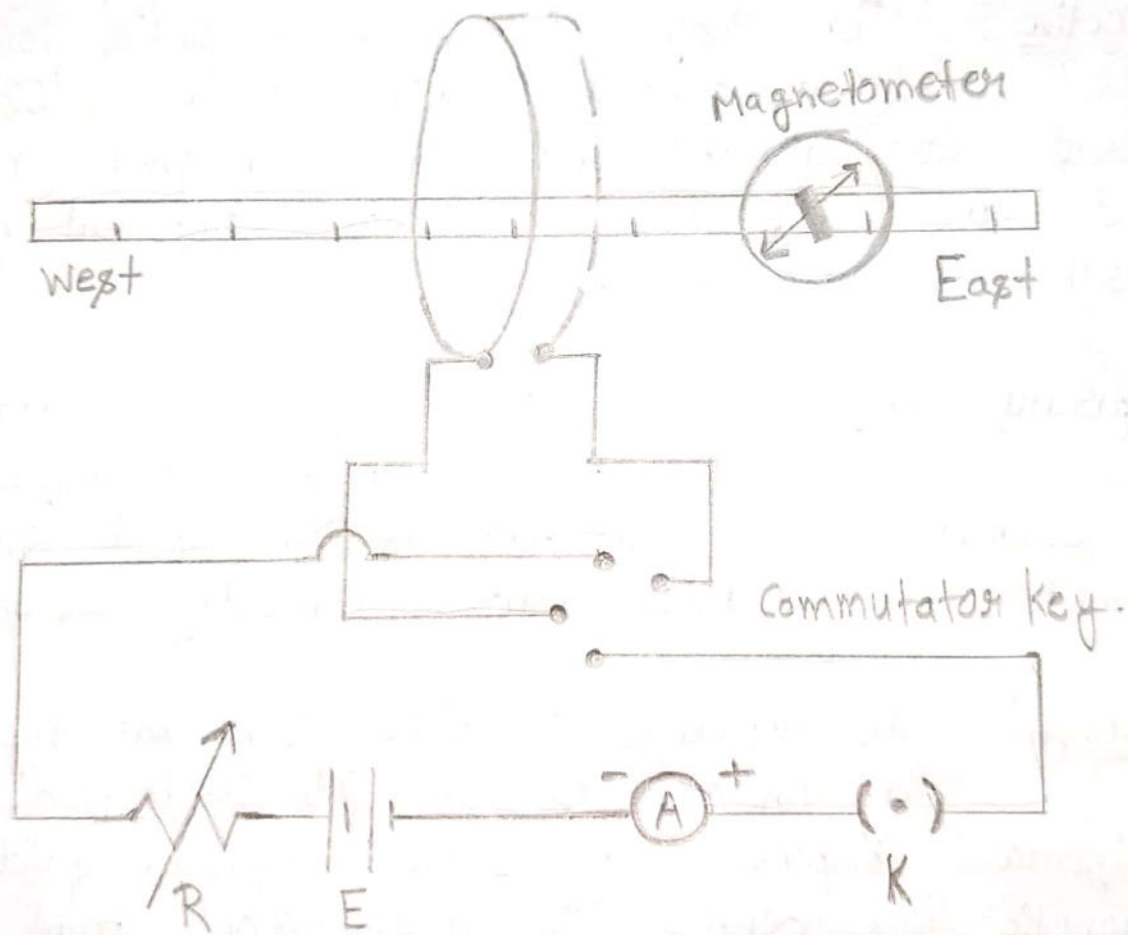 Magnetometer
West
East
Commutator key.
- A +
R E K